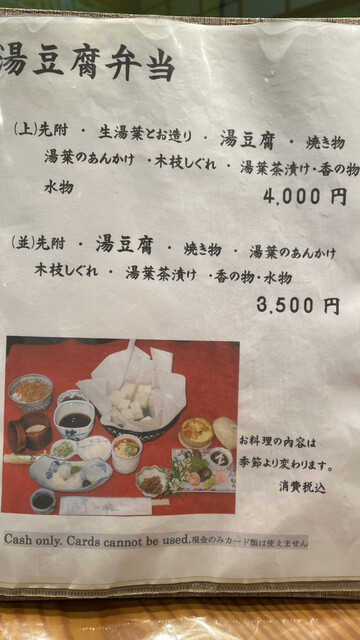 湯豆腐弁当
(上)先附 ・ 生湯葉とお造り ・ 湯豆腐 ・ 焼き物
湯葉のあんかけ ・木枝しぐれ ・ 湯葉茶漬け・香の物
水物
4,000 円
(並)先附 ・ 湯豆腐 ・ 焼き物 ・ 湯葉のあんかけ
木枝しぐれ ・ 湯葉茶漬け ・香の物・水物
3,500 円
お料理の内容は
季節より変わります。
消費税込
Cash only. Cards cannot be used.現金のみカード類は使えません